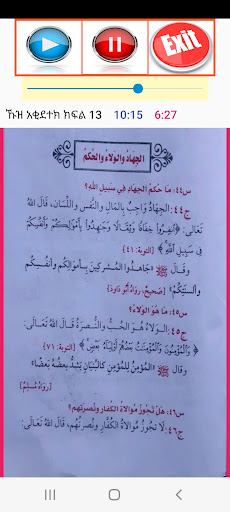 Exit
ኹዝ አቂደተክ ክፍል 13 10:15 6:27
الجِهَادُ وَالوَلَاءُ وَالحُكْمُ
س٤٤: مَا حُكْمُ الجِهَادِ فِي سَبِيلِ اللهِ؟
ج٤٤: الجِهَادُ وَاجِبٌ بِالمَالِ وَالنَّفْسِ وَاللِّسَانِ، قَالَ اللهُ
تَعَالَى: ﴿انفِرُوا خِفَافًا وَثِقَالًا وَجَٰهِدُوا بِأَمْوَٰلِكُمْ وَأَنفُسِكُمْ
فِي سَبِيلِ اللَّهِ﴾ [التوبة: ٤١]
وقَالَ ﷺ «جَاهِدُوا المُشْرِكِينَ بِأَمْوَالِكُمْ وَأَنْفُسِكُمْ
وَأَلْسِنَتِكُمْ» [صَحِيحٌ، رَوَاهُ أَبُو دَاوُدَ]
س٤٥: مَا هُوَ الوَلَاءُ؟
ج٤٥: الوَلَاءُ هُوَ الحُبُّ وَالنُّصْرَةُ قَالَ اللهُ تَعَالَى:
﴿وَالْمُؤْمِنُونَ وَالْمُؤْمِنَٰتُ بَعْضُهُمْ أَوْلِيَاءُ بَعْضٍ﴾ [التوبة: ٧١]
وقَالَ ﷺ «المُؤْمِنُ لِلْمُؤْمِنِ كَالبُنْيَانِ يَشُدُّ بَعْضُهُ بَعْضًا»
[رَوَاهُ مُسْلِمٌ]
س٤٦: هَلْ تَجُوزُ مُوَالَاةُ الكُفَّارِ وَنُصْرَتُهُمْ؟
ج٤٦: لَا تَجُوزُ مُوَالَاةُ الكُفَّارِ وَنُصْرَتُهُمْ، قَالَ اللهُ تَعَالَى: